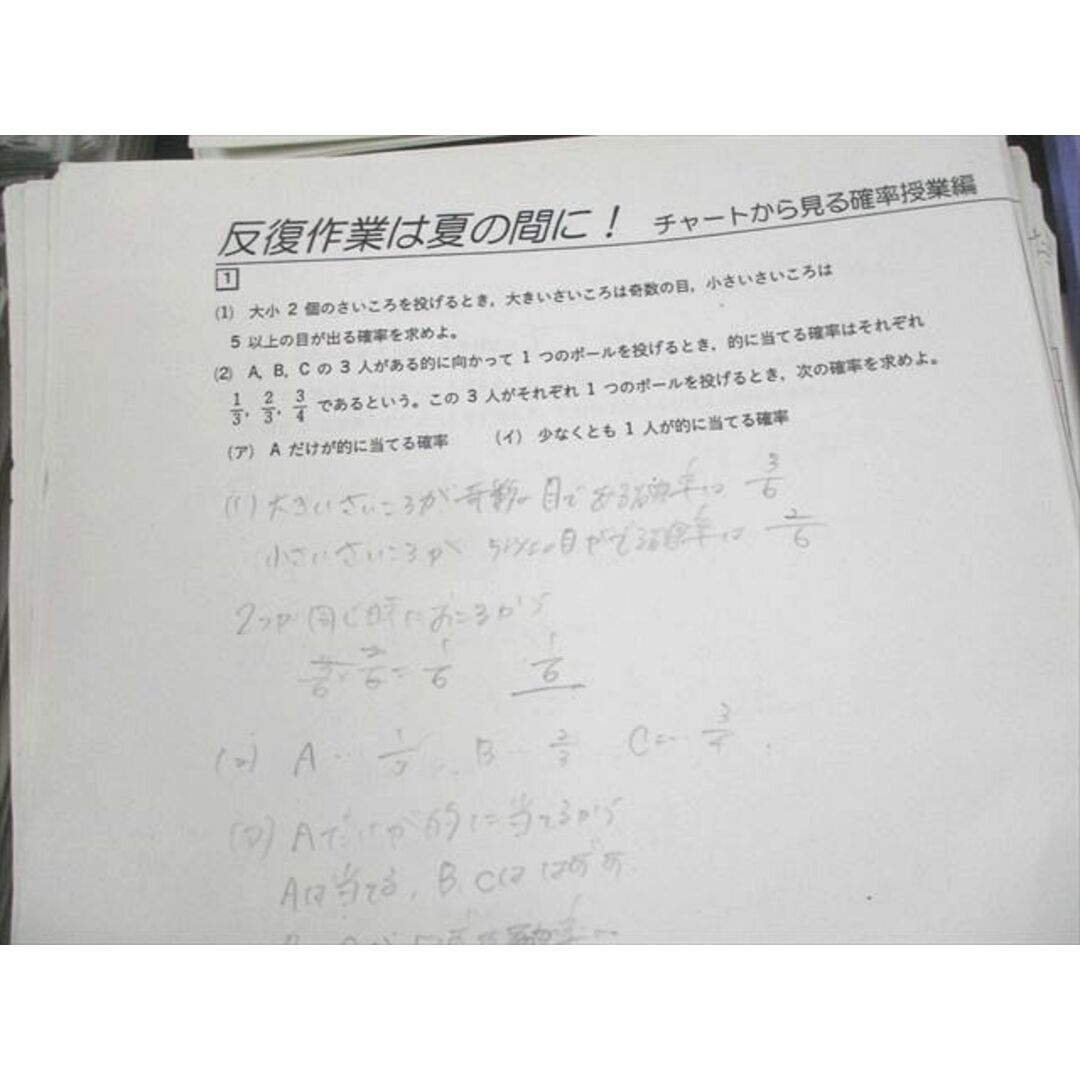 反復作業は夏の間に! チャートから見る確率授業編
1
(1) 大小 2 個のさいころを投げるとき，大きいさいころは奇数の目，小さいさいころは
5 以上の目が出る確率を求めよ。
(2) A, B, C の 3 人がある的に向かって 1 つのボールを投げるとき，的に当てる確率はそれぞれ
1/3, 2/3, 3/4 であるという。この 3 人がそれぞれ 1 つのボールを投げるとき，次の確率を求めよ。
(ア) A だけが的に当てる確率 (イ) 少なくとも 1 人が的に当てる確率
(1) 大きいさいころが奇数の目である確率は 3/6
小さいさいころが 5以上の目がでる確率は 2/6
2つが同じ時におこるから
3/6 × 2/6 = 1/6 1/6
(2) A … 1/3, B … 2/3 C … 3/4
(ア) Aだけが的に当てるから
Aは当てる, B, Cははずす.